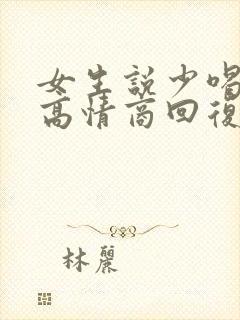 女生說少喝
高情商回復
林麗